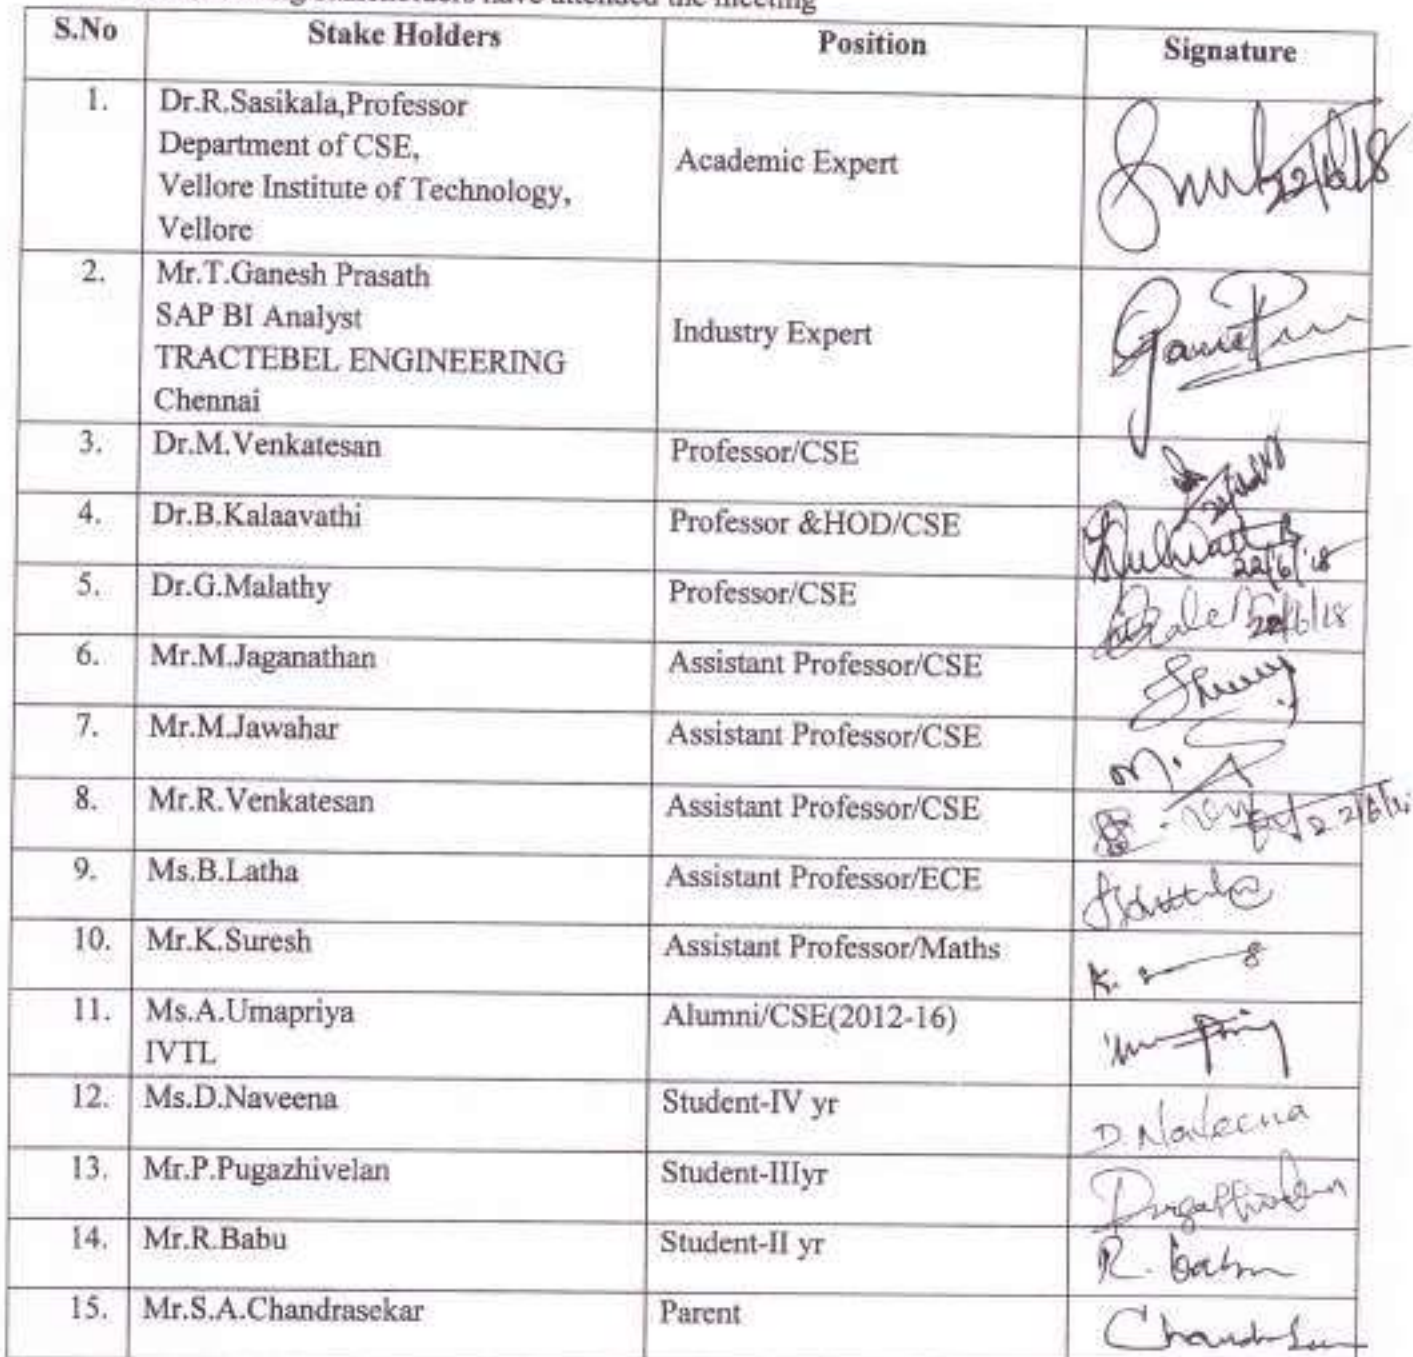 stakeholders have attended the meeting
S.No Stake Holders Position Signature
1. Dr.R.Sasikala,Professor
Department of CSE,
Vellore Institute of Technology,
Vellore
Academic Expert
22/6/18
2. Mr.T.Ganesh Prasath
SAP BI Analyst
TRACTEBEL ENGINEERING
Chennai
Industry Expert
3. Dr.M.Venkatesan Professor/CSE
4. Dr.B.Kalaavathi Professor &HOD/CSE
22/6/18
5. Dr.G.Malathy Professor/CSE 22/6/18
6. Mr.M.Jaganathan Assistant Professor/CSE
7. Mr.M.Jawahar Assistant Professor/CSE M.
8. Mr.R.Venkatesan Assistant Professor/CSE
9. Ms.B.Latha Assistant Professor/ECE
10. Mr.K.Suresh Assistant Professor/Maths K.
11. Ms.A.Umapriya Alumni/CSE(2012-16)
IVTL
12. Ms.D.Naveena Student-IV yr D. Naveena
13. Mr.P.Pugazhivelan Student-IIIyr
14. Mr.R.Babu Student-II yr R. Babu
15. Mr.S.A.Chandrasekar Parent